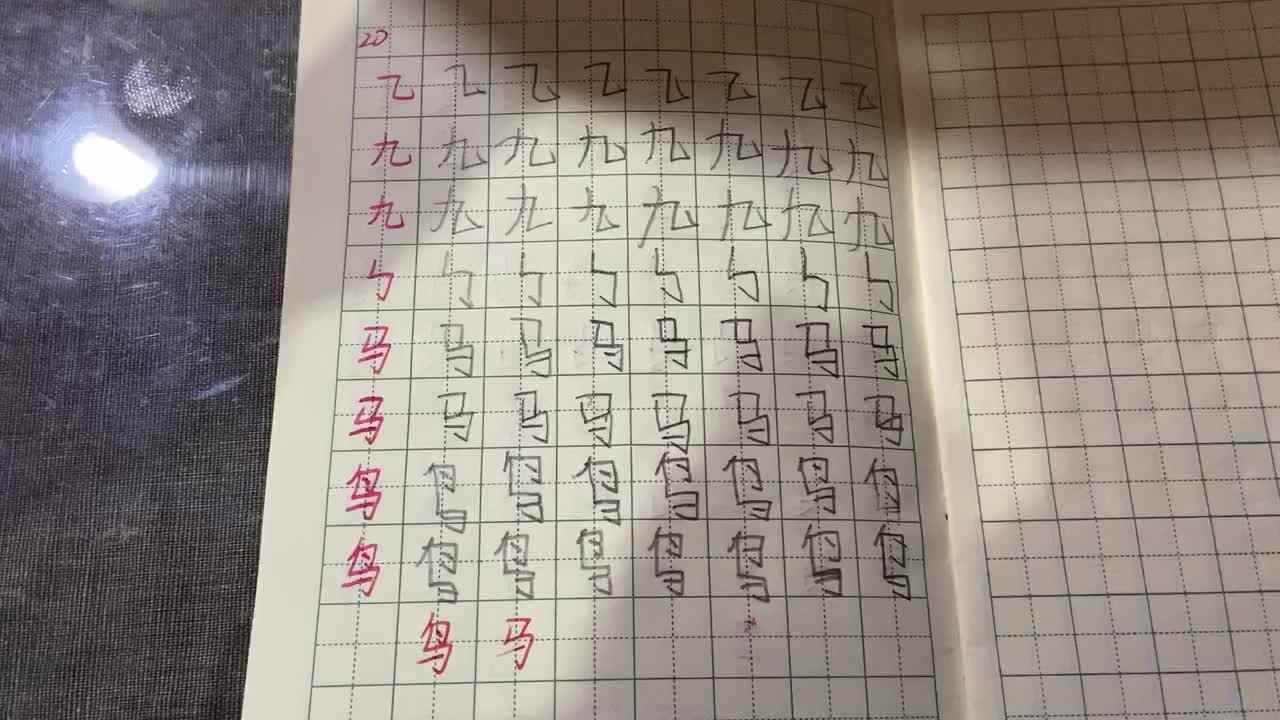 20
乙 乙 乙 乙 乙 乙 乙 乙
九 九 九 九 九 九 九 九
九 九 九 九 九 九 九 九
ㄣ ㄣ ㄣ ㄣ ㄣ ㄣ ㄣ ㄣ
马 马 马 马 马 马 马 马
马 马 马 马 马 马 马 马
鸟 鸟 鸟 鸟 鸟 鸟 鸟 鸟
鸟 鸟 鸟 鸟 鸟 鸟 鸟 鸟
鸟 马